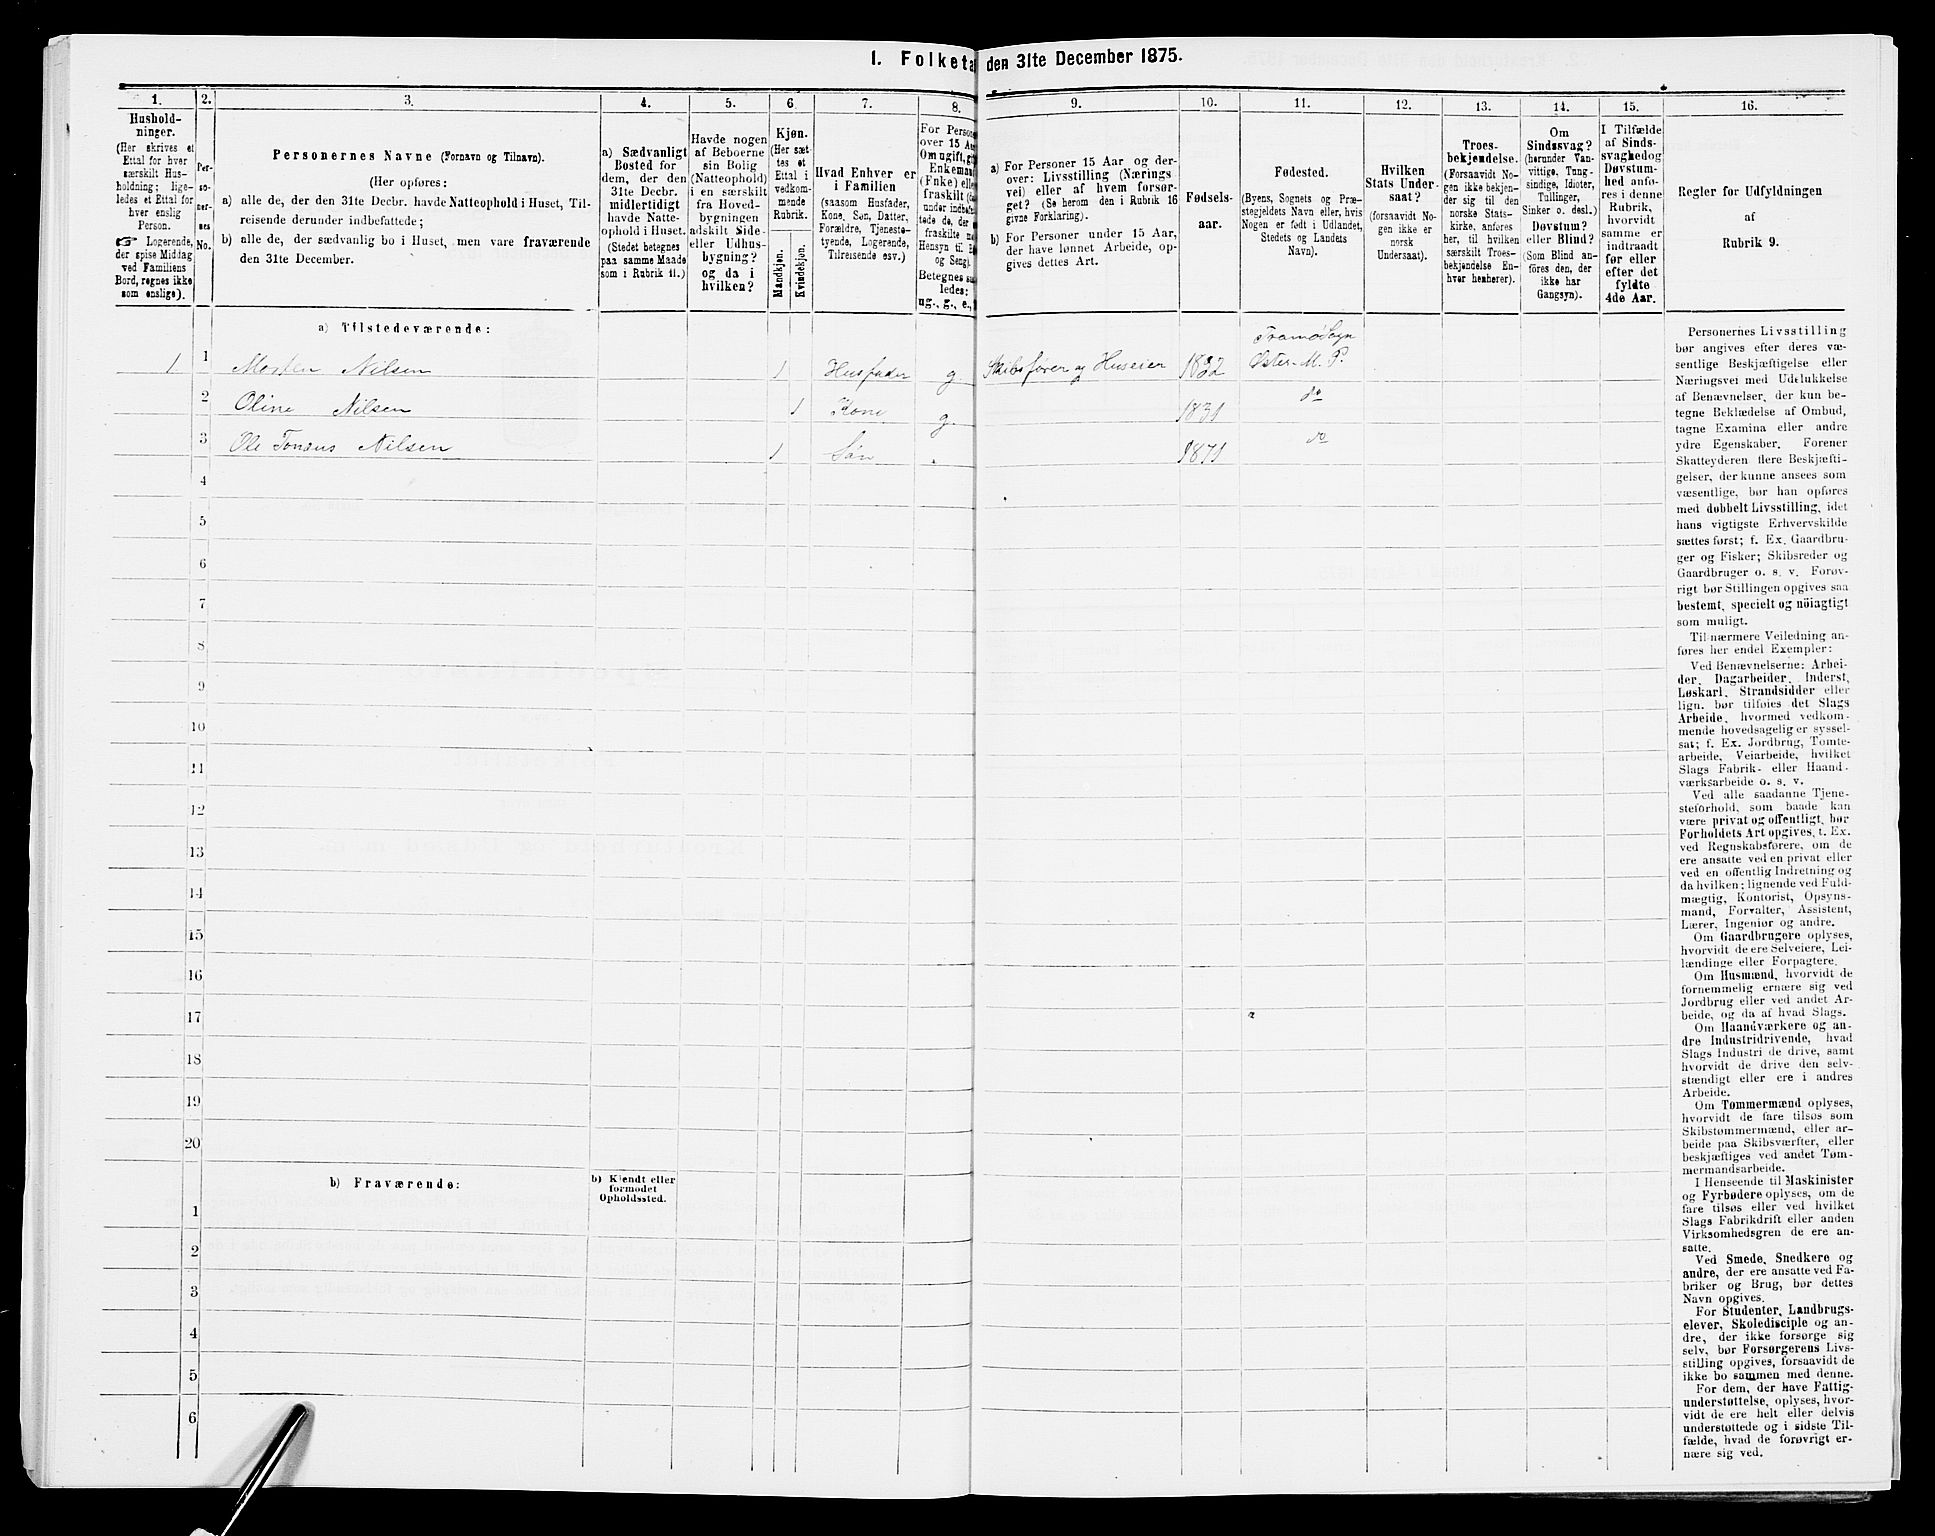 1. Folketæ den 31te December 1875.
1.
Hushold-
ninger.
(Her skrives et
Ettal for hver
særskilt Hus-
holdning; lige-
ledes et Ettal for
hver enslig
Person.
☞ Logerende,
der spise Middag
ved Familiens
Bord, regnes ikke
som enslige).
2.
Per-
so-
ner-
nes
No.
3.
Personernes Navne (Fornavn og Tilnavn).
(Her opføres:
a) alle de, der den 31te Decbr. havde Natteophold i Huset, Til-
reisende derunder indbefattede;
b) alle de, der sædvanlig bo i Huset, men vare fraværende
den 31te December.
4.
a) Sædvanligt
Bosted for
dem, der den
31te Decbr.
midlertidigt
havde Natte-
ophold i Huset.
(Stedet betegnes
paa samme Maade
som i Rubrik 11.)
5.
Havde nogen
af Beboerne
sin Bolig
(Natteophold)
i en særskilt
fra Hoved-
bygningen
adskilt Side-
eller Udhus-
bygning?
og da i
hvilken?
6.
Kjøn.
(Her sæt-
tes et
Ettal i
vedkom-
mende
Rubrik.
Mandkjøn.
Kvindekjøn.
7.
Hvad Enhver er
i Familien
(saasom Husfader,
Kone, Søn, Datter,
Forældre, Tjeneste-
tyende, Logerende,
Tilreisende osv.)
8.
For Person
over 15 Aa
Om ugift, gi
Enkemand
(Enke) elle
fraskilt
under indbefat-
tede de, der
fraskilte
Hensyn til B
og Seng).
Betegnes saa
ledes:
ug., g., e.,
9.
a) For Personer 15 Aar og der-
over: Livsstilling (Nærings
vei) eller af hvem forsør-
get? (Se herom den i Rubrik 16
givne Forklaring).
b) For Personer under 15 Aar,
der have lønnet Arbeide, op-
gives dettes Art.
10.
Fødsels-
aar.
11.
Fødested.
(Byens, Sognets og Præ-
stegjeldets Navn eller, hvis
Nogen er født i Udlandet,
Stedets og Landets
Navn).
12.
Hvilken
Stats Under-
saat?
(forsaavidt No-
gen ikke er
norsk
Undersaat).
13.
Troes-
bekjendelse.
(Forsaavidt No-
gen ikke bekjen-
der sig til den
norske Stats-
kirke, anføres
her, til hvilken
særskilt Troes-
bekjendelse En-
hver henhører).
14.
Om
Sindssvag?
(herunder Van-
vittige, Tung-
sindige, Idioter,
Tullinger,
Sinker o. desl.)
Døvstum?
eller Blind?
(Som Blind an-
føres den, der
ikke har
Gangsyn).
15.
I Tilfælde
af Sinds-
svaghed og
Døvstum-
hed anfø-
res i denne
Rubrik,
hvorvidt
samme er
indtraadt
før eller
efter det
fyldte
4de Aar.
16.
Regler for Udfyldningen
af
Rubrik 9.
a) Tilstedeværende:
1 1 Morten Nilsen 1 Husfader g. Skibsfører og Huseier 1832 Tromø Sogn Øster-M. P.
2 Oline Nilsen 1 Kone g. 1831 do
3 Ole Tonæus Nilsen 1 Søn . 1871 do
4
5
6
7
8
9
10
11
12
13
14
15
16
17
18
19
20
b) Fraværende:
b) Kjendt eller
formodet
Opholdssted.
1
2
3
4
5
6
Personernes Livsstilling
bør angives efter deres væ-
sentlige Beskjæftigelse eller
Næringsvei med Udelukkelse
af Benævnelser, der kun be-
tegne Beklædelse af Ombud,
tagne Examina eller andre
ydre Egenskaber. Forener
Skatteyderen flere Beskjæfti-
gelser, der kunne ansees som
væsentlige, bør han opføres
med dobbelt Livsstilling, idet
hans vigtigste Erhvervskilde
sættes først; f. Ex. Gaardbru-
ger og Fisker; Skibsreder og
Gaardbruger o. s. v. Forøv-
rigt bør Stillingen opgives saa
bestemt, specielt og nöiagtigt
som muligt.
Til nærmere Veiledning an-
føres her endel Exempler:
Ved Benævnelserne: Arbei-
der, Dagarbeider, Inderst,
Løskarl, Strandsidder eller
lign. bør tilføies det Slags
Arbeide, hvormed vedkom-
mende hovedsagelig er syssel-
sat; f. Ex. Jordbrug, Tomte-
arbeide, Veiarbeide, hvilket
Slags Fabrik- eller Haand-
værksarbeide o. s. v.
Ved alle saadanne Tjene-
steforhold, som baade kan
være privat og offentligt, bør
Forholdets Art opgives, t. Ex.
ved Regnskabsførere, om de
ere ansatte ved en privat eller
ved en offentlig Indretning og
da hvilken; lignende ved Fuld-
mægtig, Kontorist, Opsyns-
mand, Forvalter, Assistent,
Lærer, Ingeniør og andre.
Om Gaardbrugere oplyses,
hvorvidt de ere Selveiere, Lei-
lændinge eller Forpagtere.
Om Husmænd, hvorvidt de
fornemmelig ernære sig ved
Jordbrug eller ved andet Ar-
beide, og da af hvad Slags.
Om Haandværkere og an-
dre Industridrivende, hvad
Slags Industri de drive, samt
hvorvidt de drive den selv-
stændigt eller ere i andres
Arbeide.
Om Tømmermænd oplyses,
hvorvidt de fare tilsøs som
Skibstømmermænd, eller ar-
beide paa Skibsværfter, eller
beskjæftiges ved andet Tøm-
mermandsarbeide.
I Henseende til Maskinister
og Fyrbødere oplyses, om de
fare tilsøs eller ved hvilket
Slags Fabrikdrift eller anden
Virksomhedsgren de ere an-
satte.
Ved Smede, Snedkere og
andre, der ere ansatte ved Fa-
briker og Brug, bør dettes
Navn opgives.
For Studenter, Landbrugs-
elever, Skoledisciple og an-
dre, der ikke forsørge sig
selv, bør Forsørgerens Livs-
stilling opgives, forsaavidt de
ikke bo sammen med denne.
For dem, der have Fattig-
understøttelse, oplyses, hvor-
vidt de ere helt eller delvis
understøttede og i sidste Til-
fælde, hvad de forøvrigt er-
nære sig ved.